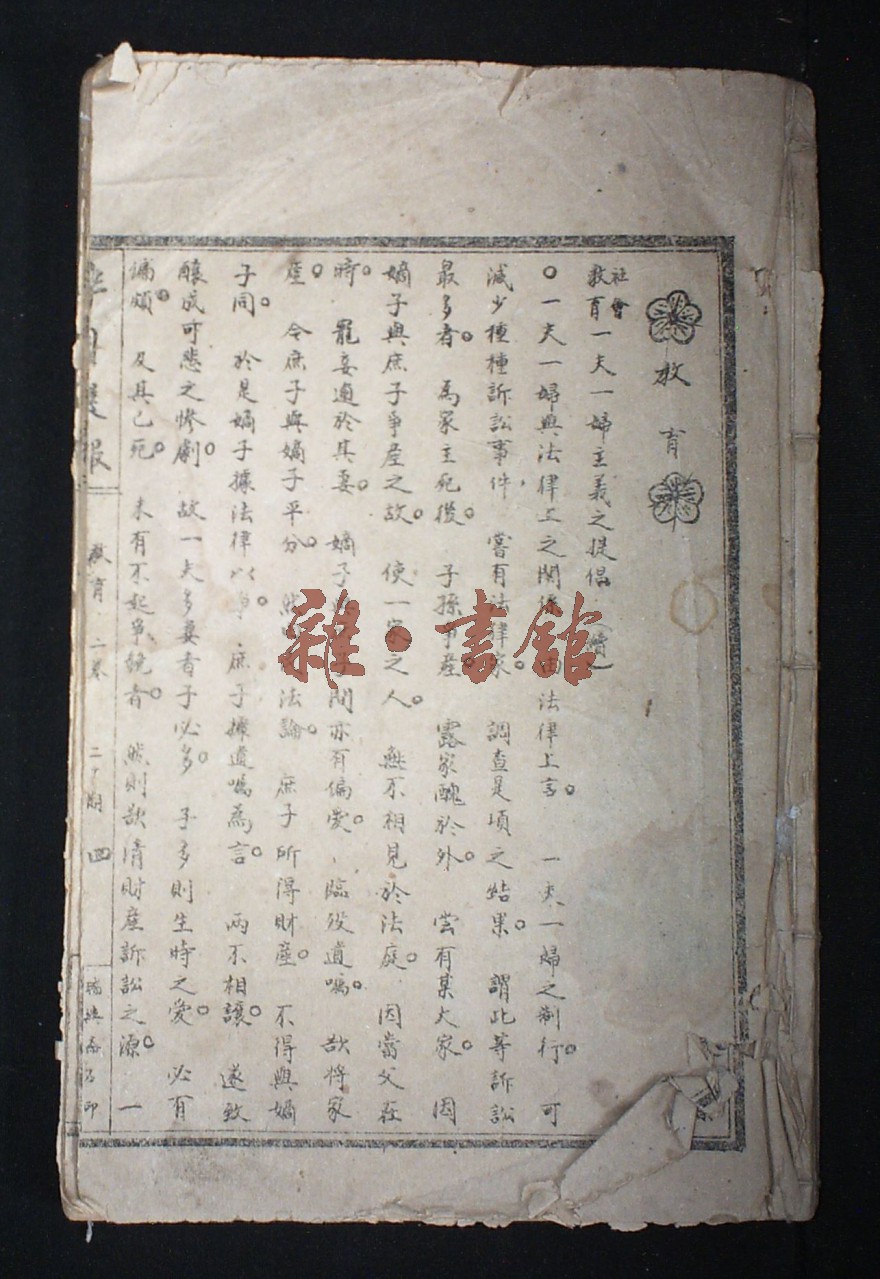 教育
社會教育 一夫一婦主義之提倡（續）
○一夫一婦與法律上之關係 由法律上言。 一夫一婦之制行。 可
減少種種訴訟事件， 嘗有法律家。 調查是項之結果。 謂此等訴訟
最多者。 為家主死後。 子孫爭產。 露家醜於外。 嘗有某大家。 因
嫡子與庶子爭產之故。 使一家之人。 無不相見於法庭。 因當父在
時。 寵妾過於其妻。 嫡子庶子間亦有偏愛、 臨歿遺囑。 欲將家
產。 令庶子與嫡子平分。 然 法論。 庶子所得財產。 不得與嫡
子同。 於是嫡子據法律以爭。 庶子據遺囑為言。 兩不相讓。 遂致
釀成可悲之慘劇。 故一夫多妻者子必多。 子多則生時之愛。 必有
偏頗。 及其已死。 未有不起爭競者。 然則欲清財產訴訟之源。 一
月 報 教育 二 期 四 印
雜·書館